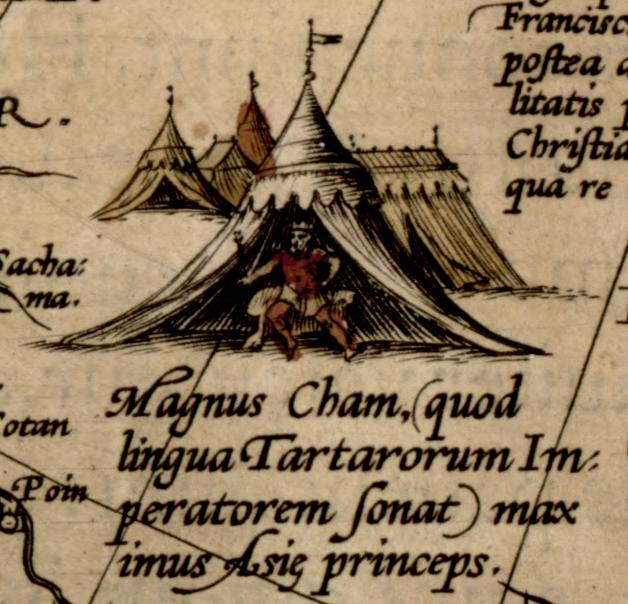 Francisc
postea a
litatis p
Christia
qua re
R.
Sacha:
ma.
Magnus Cham, (quod
lingua Tartarorum Im:
peratorem sonat) max
imus Asię princeps.
otan
Poin